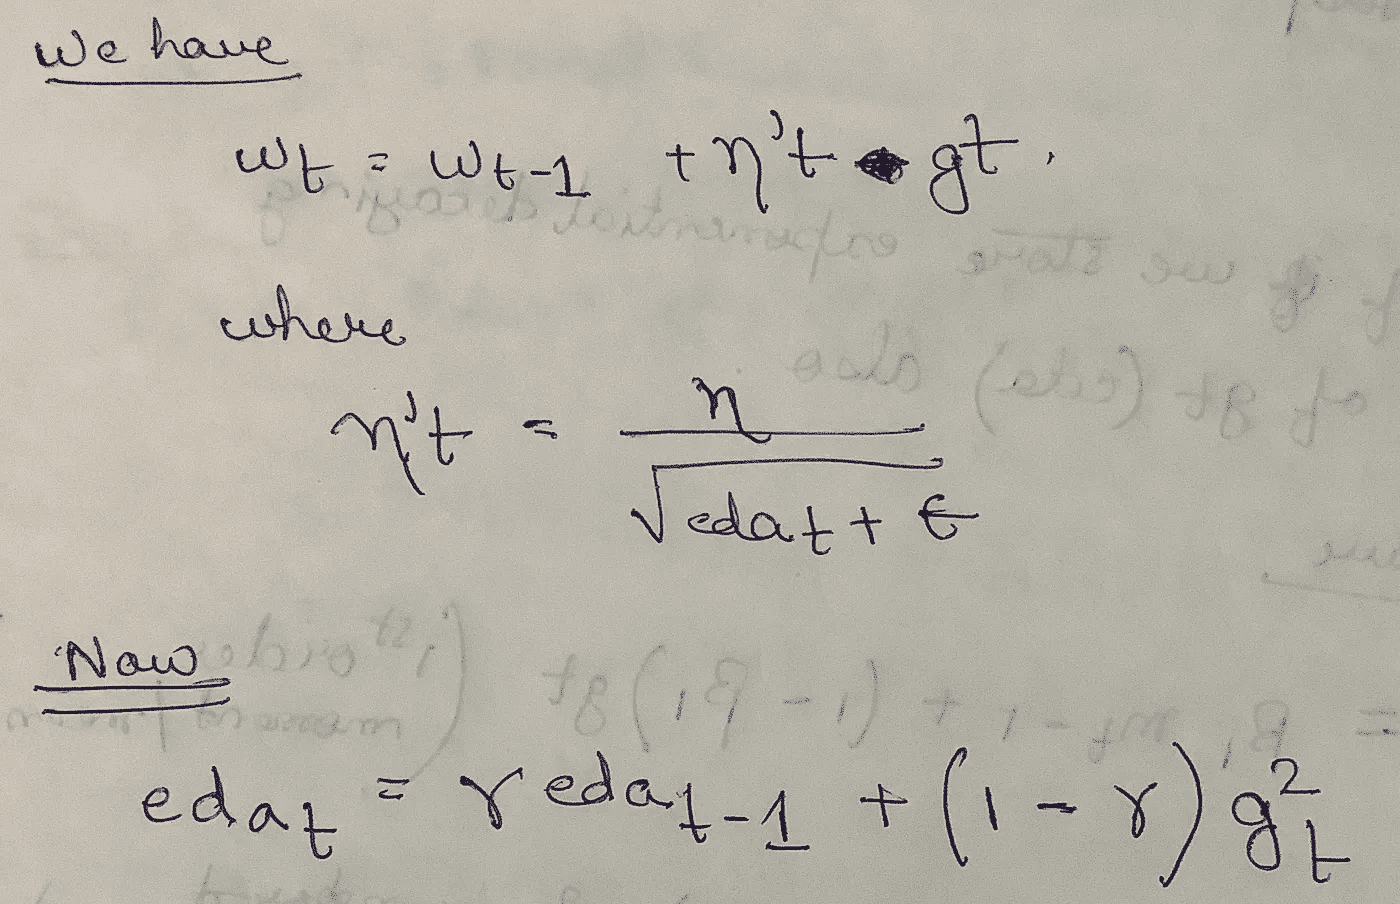 We have
wt = wt-1 + η't gt.
where
η't = η / √(edat + ε)
Now
edat = γ edat-1 + (1 - γ) g²t